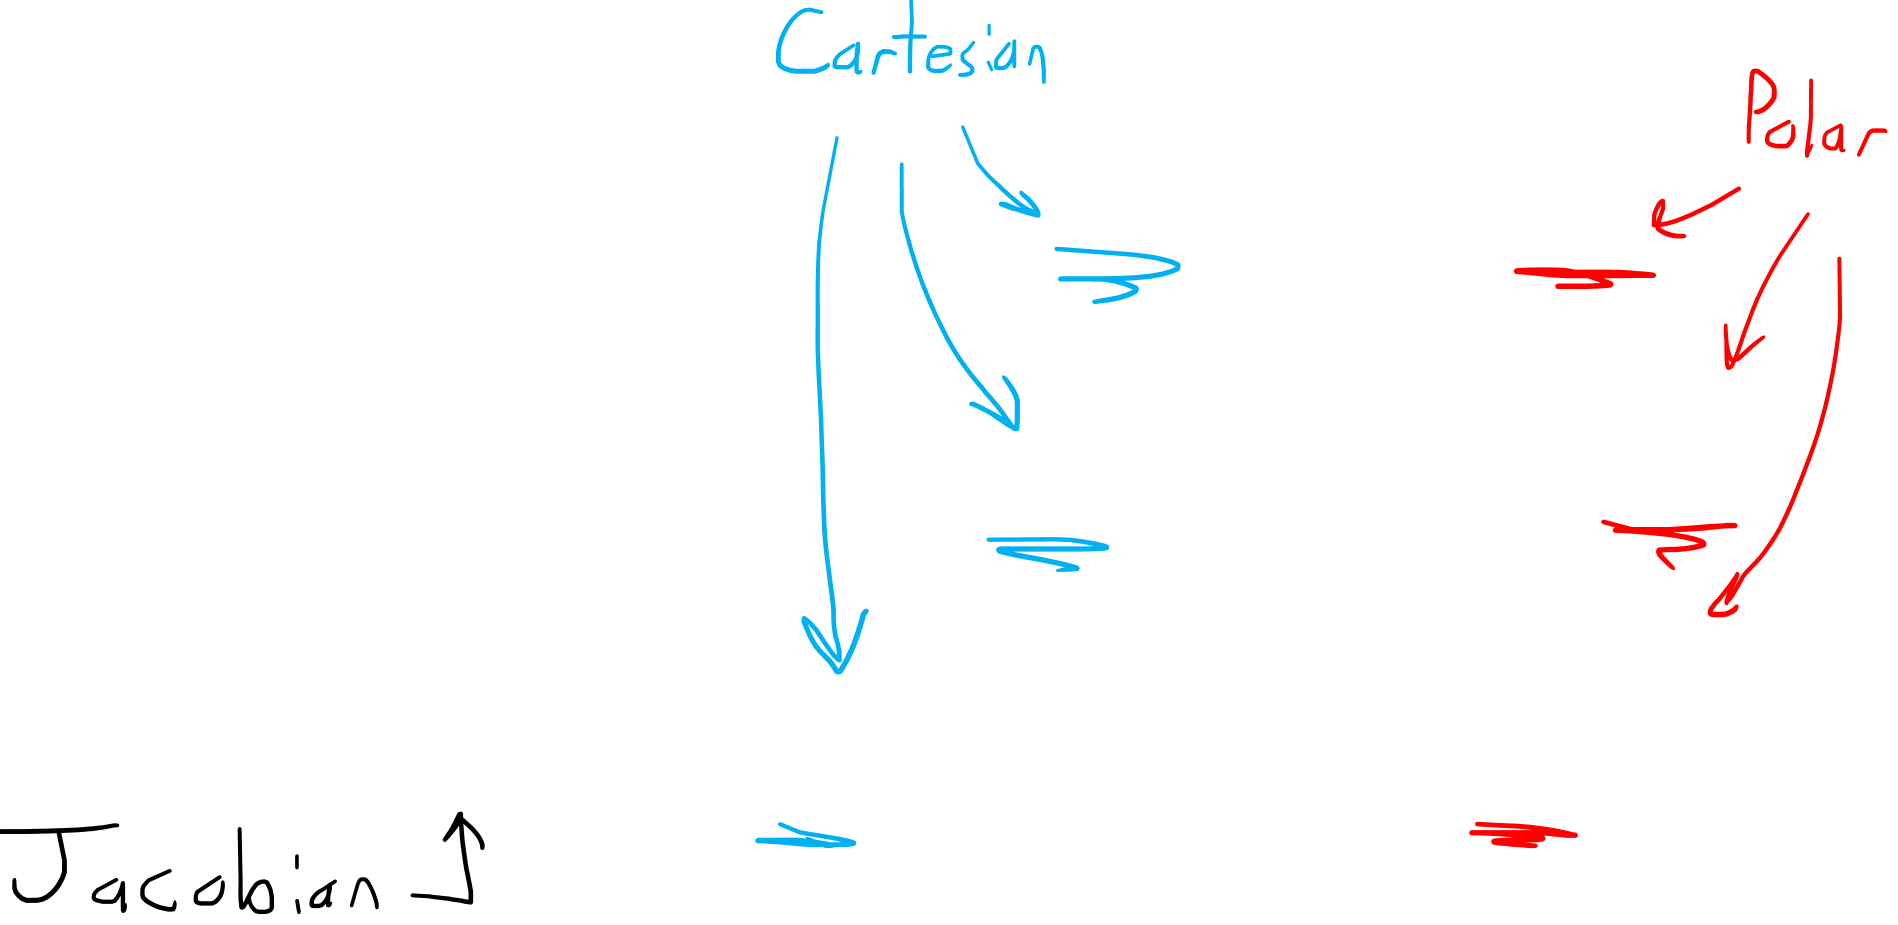 Cartesian
Polar
Jacobian